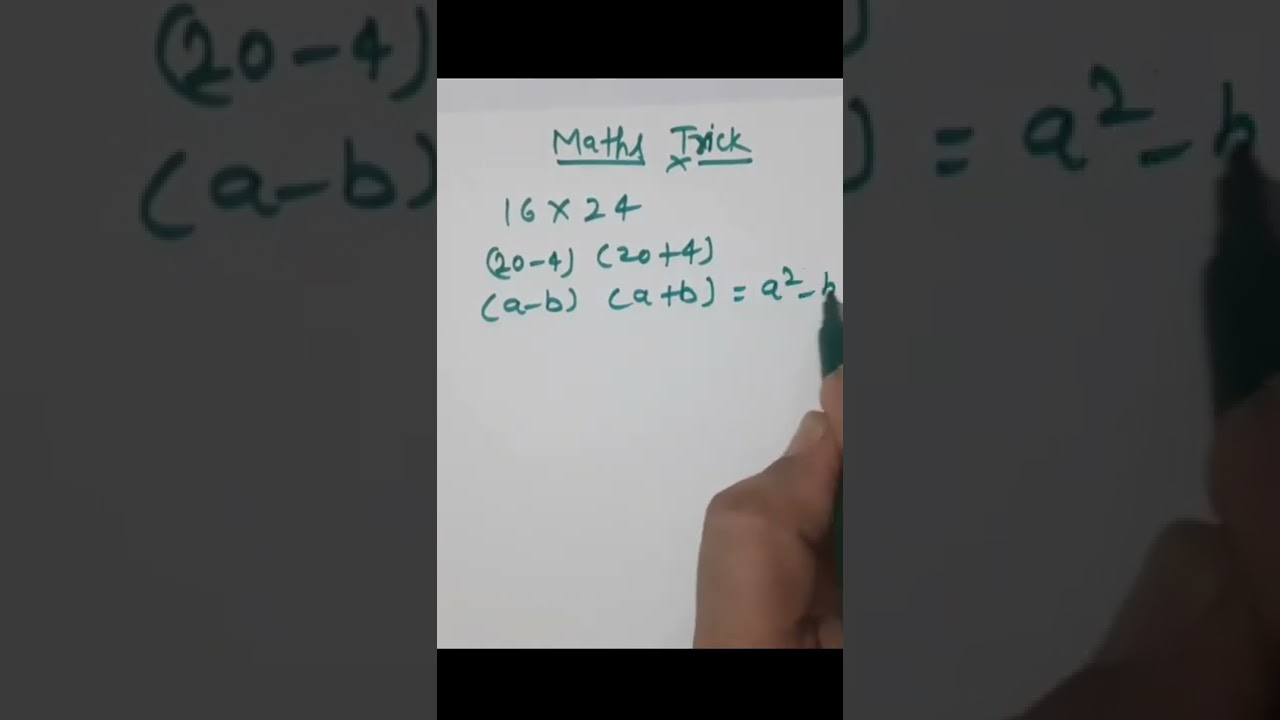 Maths Trick
×
16 × 24
(20-4) (20+4)
(a-b) (a+b) = a² - b